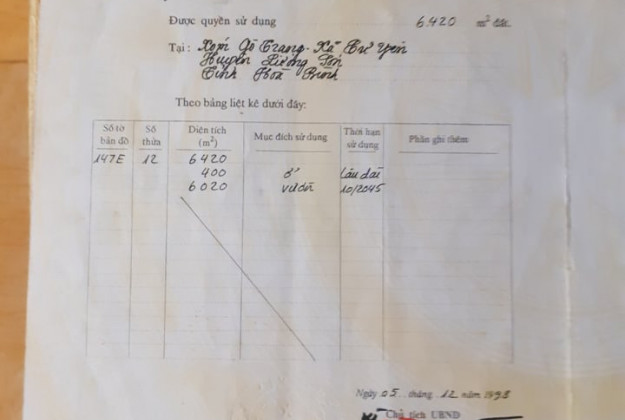 Được quyền sử dụng 6.420 m² đất
Tại: Xóm Gò Trang - Xã Cư Yên
Huyện Lương Sơn
Tỉnh Hoà Bình
Theo bảng liệt kê dưới đây:
Số tờ bản đồ Số thửa Diện tích (m²) Mục đích sử dụng Thời hạn sử dụng Phần ghi thêm
147E 12 6420
400 ở Lâu dài
6020 vườn 10/2045
Ngày 05 tháng 12 năm 1998
Chủ tịch UBND